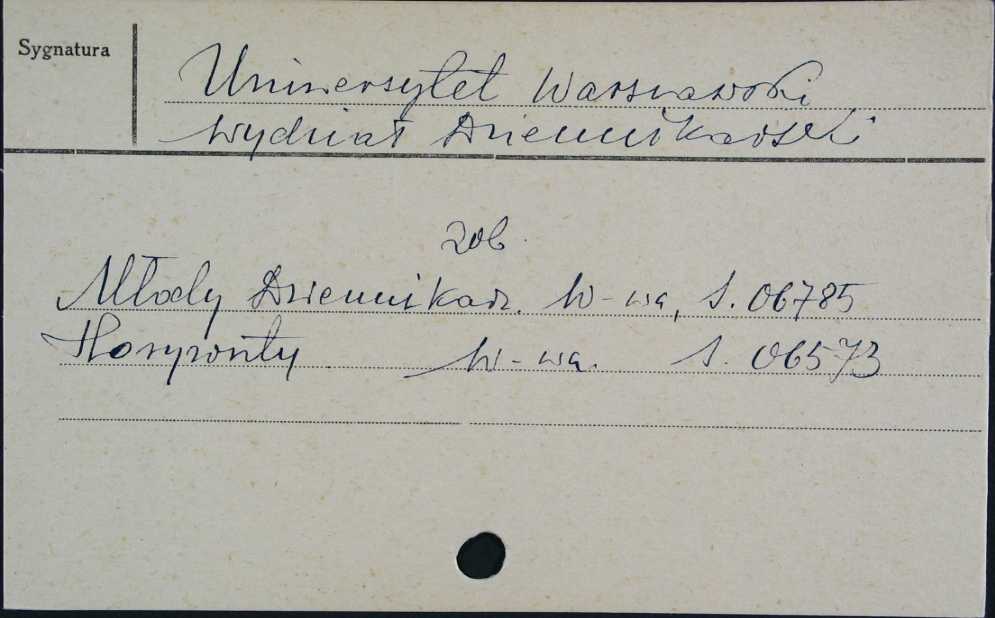 Sygnatura
Uniwersytet Warszawski
Wydział Dziennikarski
zob.
Młody Dziennikarz. W-wa, S. 06785
Horyzonty W-wa. S. 06573